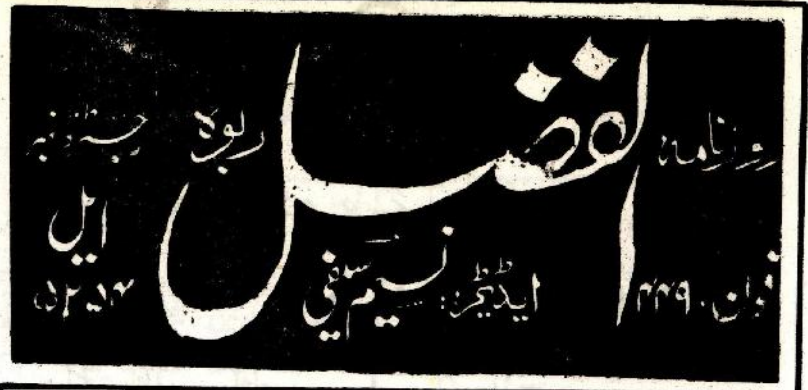 روزنامہ الفضل ربوہ رجسٹرڈ نمبر
ایل
۵۲۵۴
ایڈیٹر: نسیم سیفی
فون۔ ۴۴۹